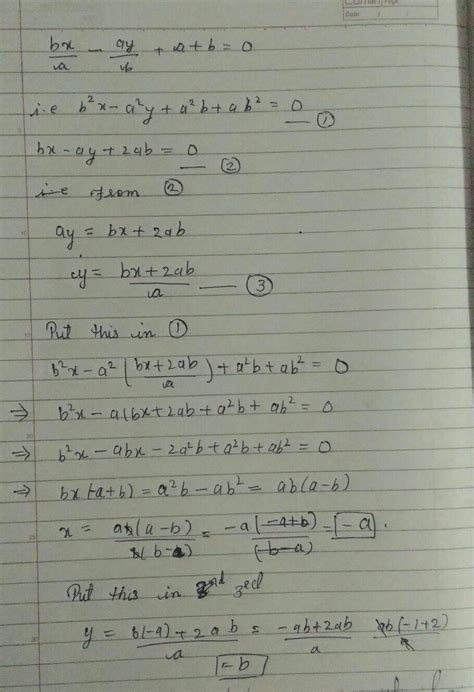 Date
bx/a - ay/b + a + b = 0
i.e b²x - a²y + a²b + ab² = 0 — ①
bx - ay + 2ab = 0 — ②
i.e from ②
ay = bx + 2ab
y = (bx + 2ab)/a — ③
Put this in ①
b²x - a² ( (bx + 2ab)/a ) + a²b + ab² = 0
⇒ b²x - a(bx + 2ab + a²b + ab² = 0
⇒ b²x - abx - 2a²b + a²b + ab² = 0
⇒ bx(-a+b) = a²b - ab² = ab(a-b)
x = ab(a-b)/b(b-a) = -a(-a+b)/(-b-a) = -a.
Put this in 3rd
y = (b(-a) + 2ab)/a = (-ab+2ab)/a ab(-1+2)/a
= b